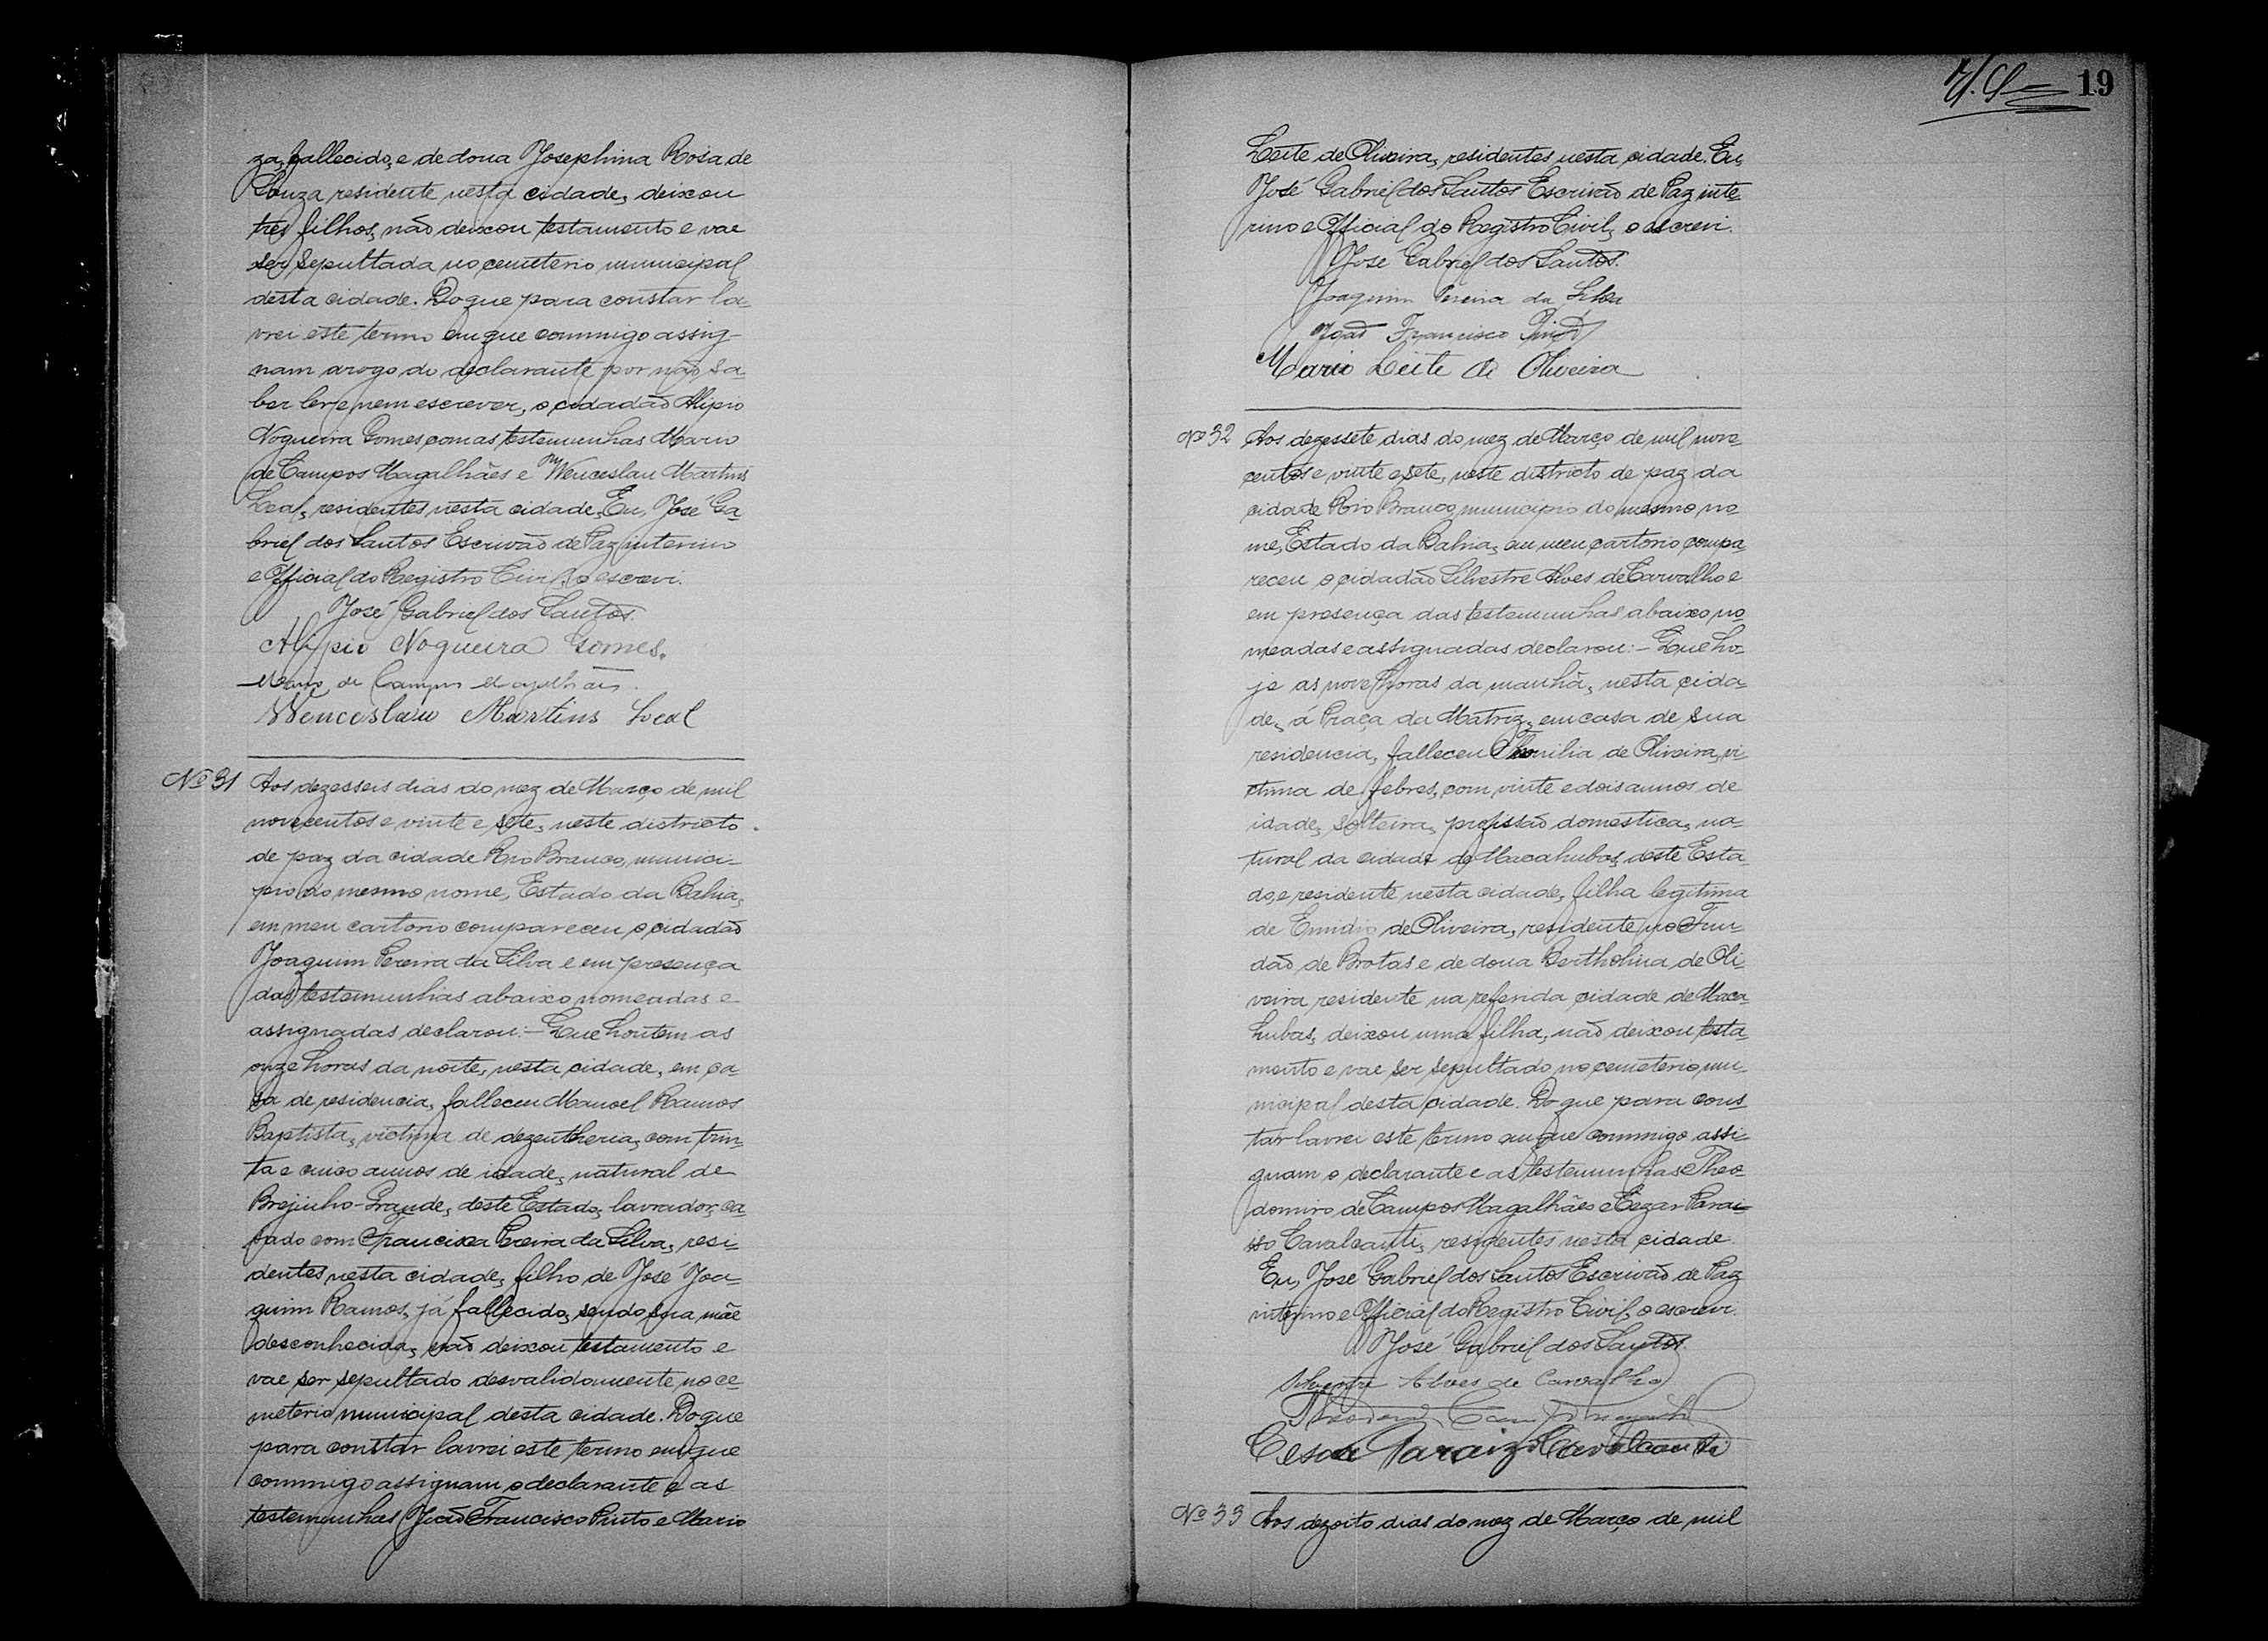 za, fallecido, e de dona Josephina Rosa de
Souza residente nesta cidade, deixou
tres filhos, não deixou testamento e vae
ser sepultada no cemeterio municipal
desta cidade. Do que para constar la-
vrei este termo em que commigo assig-
nam arogo do declarante por não sa-
ber ler e nem escrever, o cidadão Alipio
Nogueira Gomes, com as testemunhas Mario
de Campos Magalhães e Wenceslau Martins
Leal, residentes nesta cidade. Eu, José Ga-
briel dos Santos Escrivão de Paz interino
e Official do Registro Civil, o escrevi.
José Gabriel dos Santos.
Alipio Nogueira Gomes.
Mario de Campos Magalhães.
Wenceslau Martins Leal
Nº 31 Aos dezesseis dias do mez de Março de mil
novecentos e vinte e sete, neste districto
de paz da cidade Rio Branco, munici-
pio do mesmo nome, Estado da Bahia,
em meu cartorio compareceu o cidadão
Joaquim Pereira da Silva e em presença
das testemunhas abaixo nomeadas e
assignadas declarou:- Que hontem as
onze horas da noite, nesta cidade, em ca-
sa de residencia, falleceu Manoel Ramos
Baptista, victima de dezentheria, com trin-
ta e cinco annos de idade, natural de
Brejinho-Grande, deste Estado, lavrador, ca-
sado com Francisca Pereira da Silva, resi-
dentes nesta cidade, filho de José Joa-
quim Ramos, já fallecido, sendo sua mãe
desconhecida, não deixou testamento e
vae ser sepultado desvalidomente no ce-
meterio municipal desta cidade. Do que
para constar lavrei este termo em que
commigo assignam o declarante e as
testemunhas João Francisco Pinto e Mario
19
Leite de Oliveira, residentes nesta cidade. Eu,
José Gabriel dos Santos Escrivão de Paz inte-
rino e Official do Registro Civil, o escrevi.
José Gabriel dos Santos.
Joaquim Pereira da Silva
João Francisco Pinto
Mario Leite de Oliveira
Nº 32 Aos dezessete dias do mez de Março de mil nove-
centos e vinte e sete, neste districto de paz da
cidade Rio Branco, municipio do mesmo no-
me, Estado da Bahia, em meu cartorio compa-
receu o cidadão Silvestre Alves de Carvalho e
em presença das testemunhas abaixo no-
meadas e assignadas declarou:- Que ho-
je as nove horas da manhã, nesta cida-
de, á Praça da Matriz, em casa de sua
residencia, falleceu de Oliveira, vi-
ctima de febres, com vinte e dois annos de
idade, solteira, profissão domestica, na-
tural da cidade de Macahubas, deste Esta-
do, e residente nesta cidade, filha legitima
de Emidio de Oliveira, residente no Fun-
dão de Brotas e de dona Bertholina de Oli-
veira residente na referida cidade de Maca-
hubas, deixou uma filha, não deixou testa-
mento e vae ser sepultado no cemeterio mu-
nicipal desta cidade. Do que para cons-
tar lavrei este termo em que commigo assi-
gnam o declarante e as testemunhas Theo-
domiro de Campos Magalhães e Cezar Parai-
so Cavalcanti, residentes nesta cidade.
Eu, José Gabriel dos Santos Escrivão de Paz
interino e Official do Registro Civil, o escrevi.
José Gabriel dos Santos.
Silvestre Alves de Carvalho
Cesar Paraizo Cavalcanti
Nº 33 Aos dezoito dias do mez de Março de mil